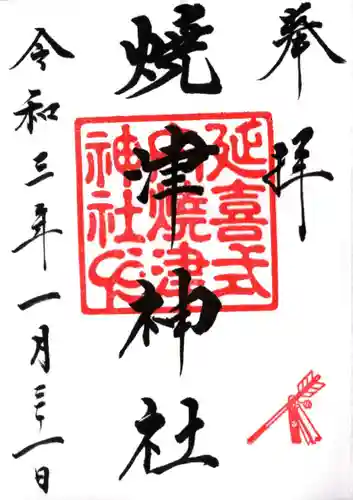 奉拝
焼津神社
延喜式
内焼津
神社之印
令和三年一月三十一日